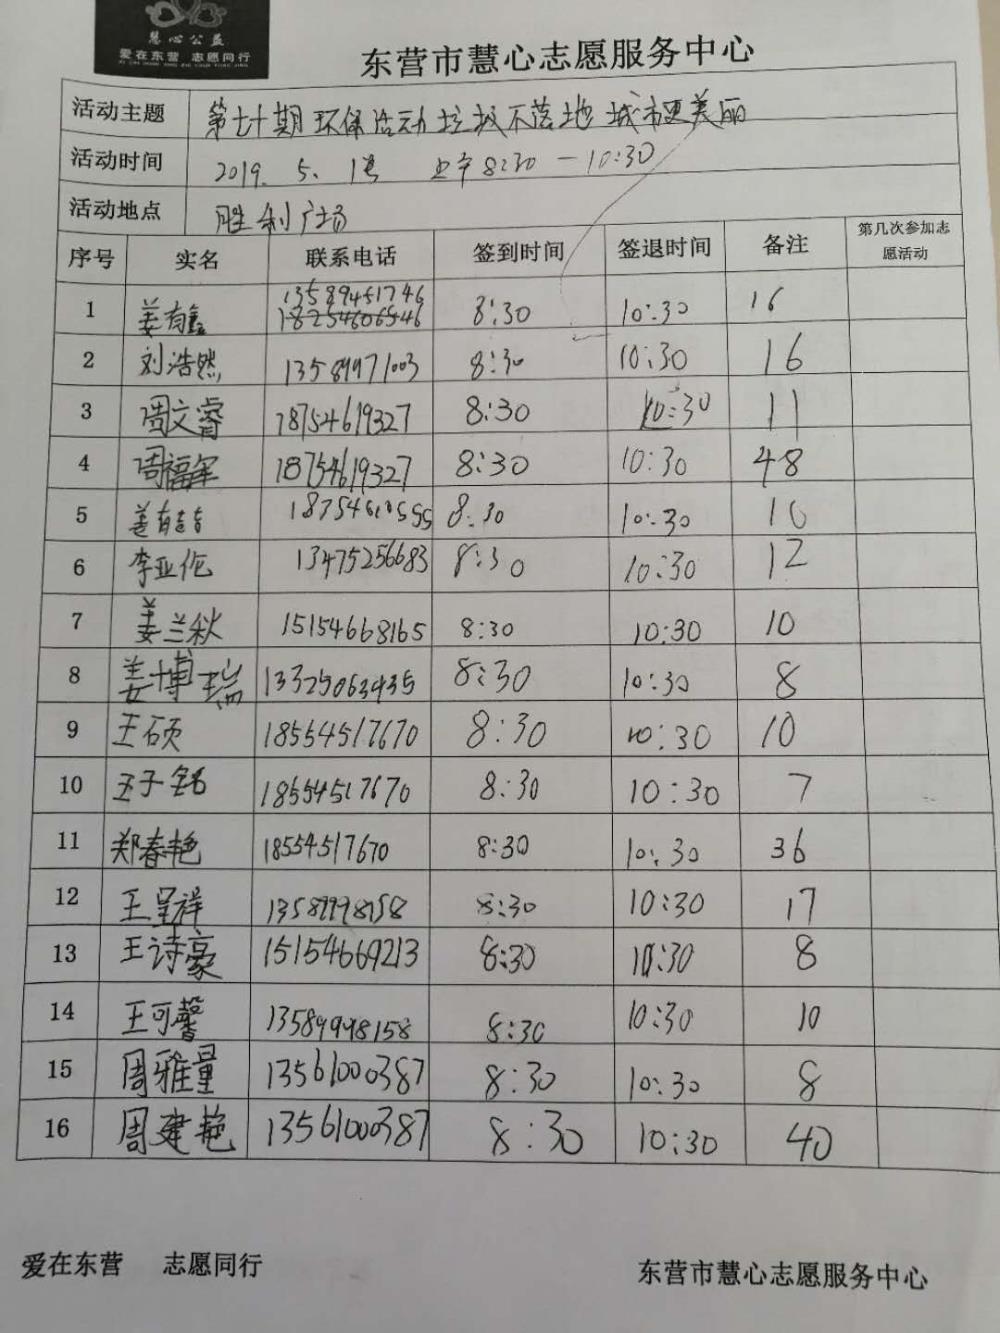 慧心公益
爱在东营 志愿同行
东营市慧心志愿服务中心
活动主题 第七十期环保活动垃圾不落地 城市更美丽
活动时间 2019. 5. 1号 上午8:30—10:30
活动地点 胜利广场
序号 实名 联系电话 签到时间 签退时间 备注 第几次参加志愿活动
1 姜有鑫 13589451746 18254606546 8:30 10:30 16
2 刘浩然 13589971003 8:30 10:30 16
3 周文睿 18754619327 8:30 10:30 11
4 周福军 18754619327 8:30 10:30 48
5 姜有喆 18754610555 8:30 10:30 10
6 李亚伦 13475256683 8:30 10:30 12
7 姜兰秋 15154668165 8:30 10:30 10
8 姜博瑞 13325063435 8:30 10:30 8
9 王硕 18554517670 8:30 10:30 10
10 王子铭 18554517670 8:30 10:30 7
11 郑春艳 18554517670 8:30 10:30 36
12 王呈祥 13589998158 8:30 10:30 17
13 王诗豪 15154669213 8:30 10:30 8
14 王可馨 13589998158 8:30 10:30 10
15 周雅量 13561000387 8:30 10:30 8
16 周建艳 13561000387 8:30 10:30 40
爱在东营 志愿同行
东营市慧心志愿服务中心